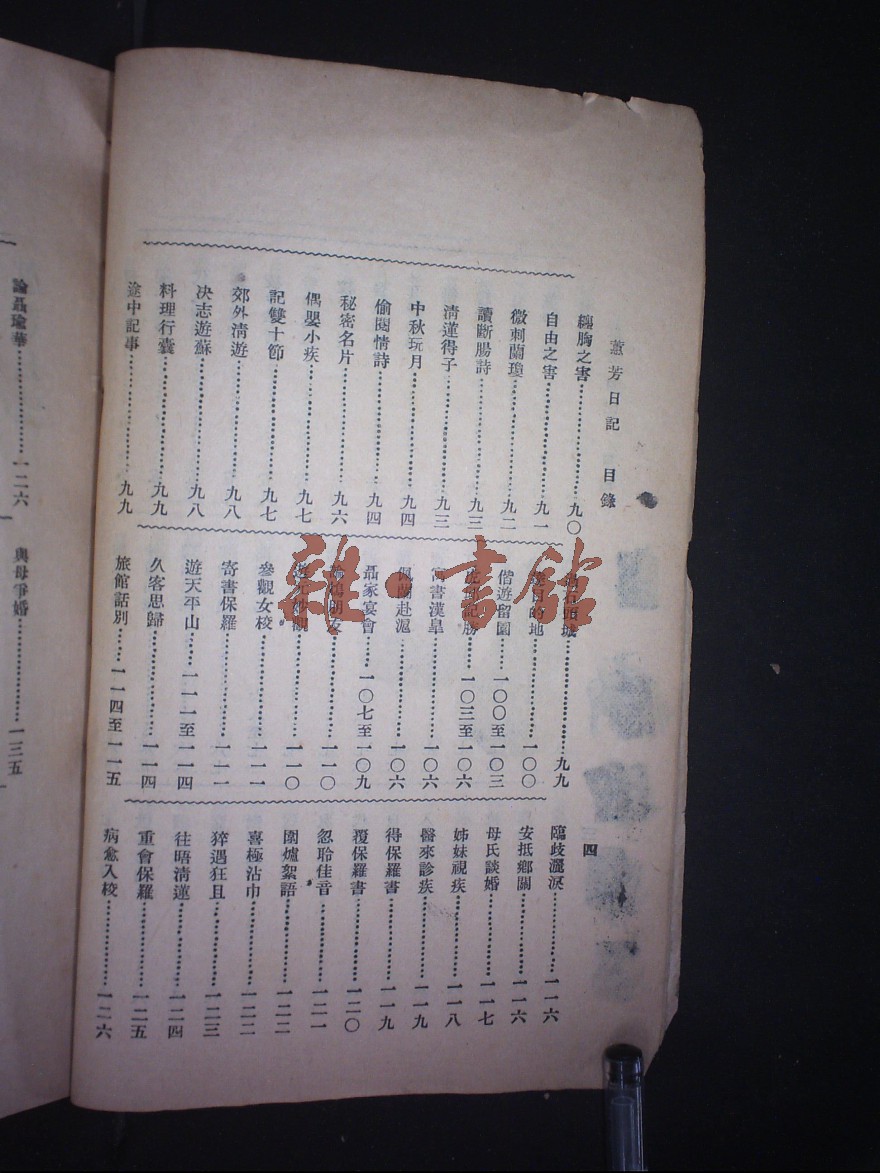 蕙芳日記 目錄
三四
纏胸之害 九〇
自由之害 九一
微刺蘭瓊 九二
讀斷腸詩 九三
清蓮得子 九三
中秋玩月 九四
偷閱情詩 九四
秘密名片 九六
偶嬰小疾 九七
記雙十節 九七
郊外清遊 九八
決志遊蘇 九八
料理行囊 九九
途中記事 九九
九九
目的地 一〇〇
偕遊留園 一〇〇至一〇三
勝 一〇三至一〇六
寓書漢皇 一〇六
佩蘭赴滬 一〇六
聶家宴會 一〇七至一〇九
一一〇
一一〇
參觀女校 一一一
寄書保羅 一一一
遊天平山 一一一至一一四
久客思歸 一一四
旅館話別 一一四至一一五
臨歧灑淚 一一六
安抵鄉關 一一六
母氏談婚 一一七
姊妹視疾 一一八
醫來診疾 一一九
得保羅書 一一九
覆保羅書 一二〇
忽聆佳音 一二一
圍爐絮語 一二二
喜極沾巾 一二二
猝遇狂且 一二三
往晤清蓮 一二四
重會保羅 一二五
病愈入校 一二六
論聶瓊華 一二六
與母爭婚 一三五
雜·書館